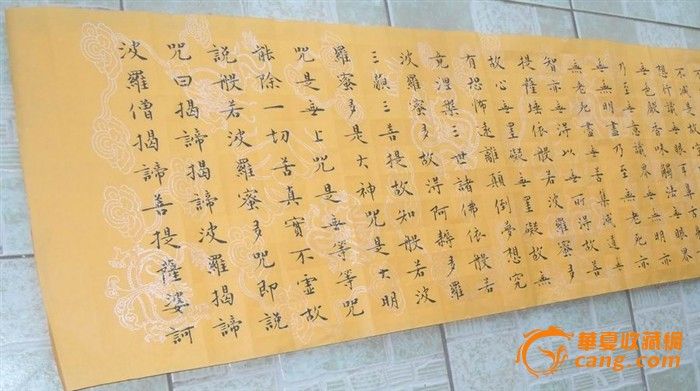 不減是
想行識無眼耳鼻
無色聲香味觸法無眼界
乃至無意識界無無明亦
無無明盡乃至無老死亦
無老死盡無苦集滅道無
智亦無得以無所得故菩
提薩埵依般若波羅蜜多
故心無罣礙無罣礙故無
有恐怖遠離顛倒夢想究
竟涅槃三世諸佛依般若
波羅蜜多故得阿耨多羅
三藐三菩提故知般若波
羅蜜多是大神咒是大明
咒是無上咒是無等等咒
能除一切苦真實不虛故
說般若波羅蜜多咒即說
咒曰揭諦揭諦波羅揭諦
波羅僧揭諦菩提薩婆訶
華夏收藏網
cang.com